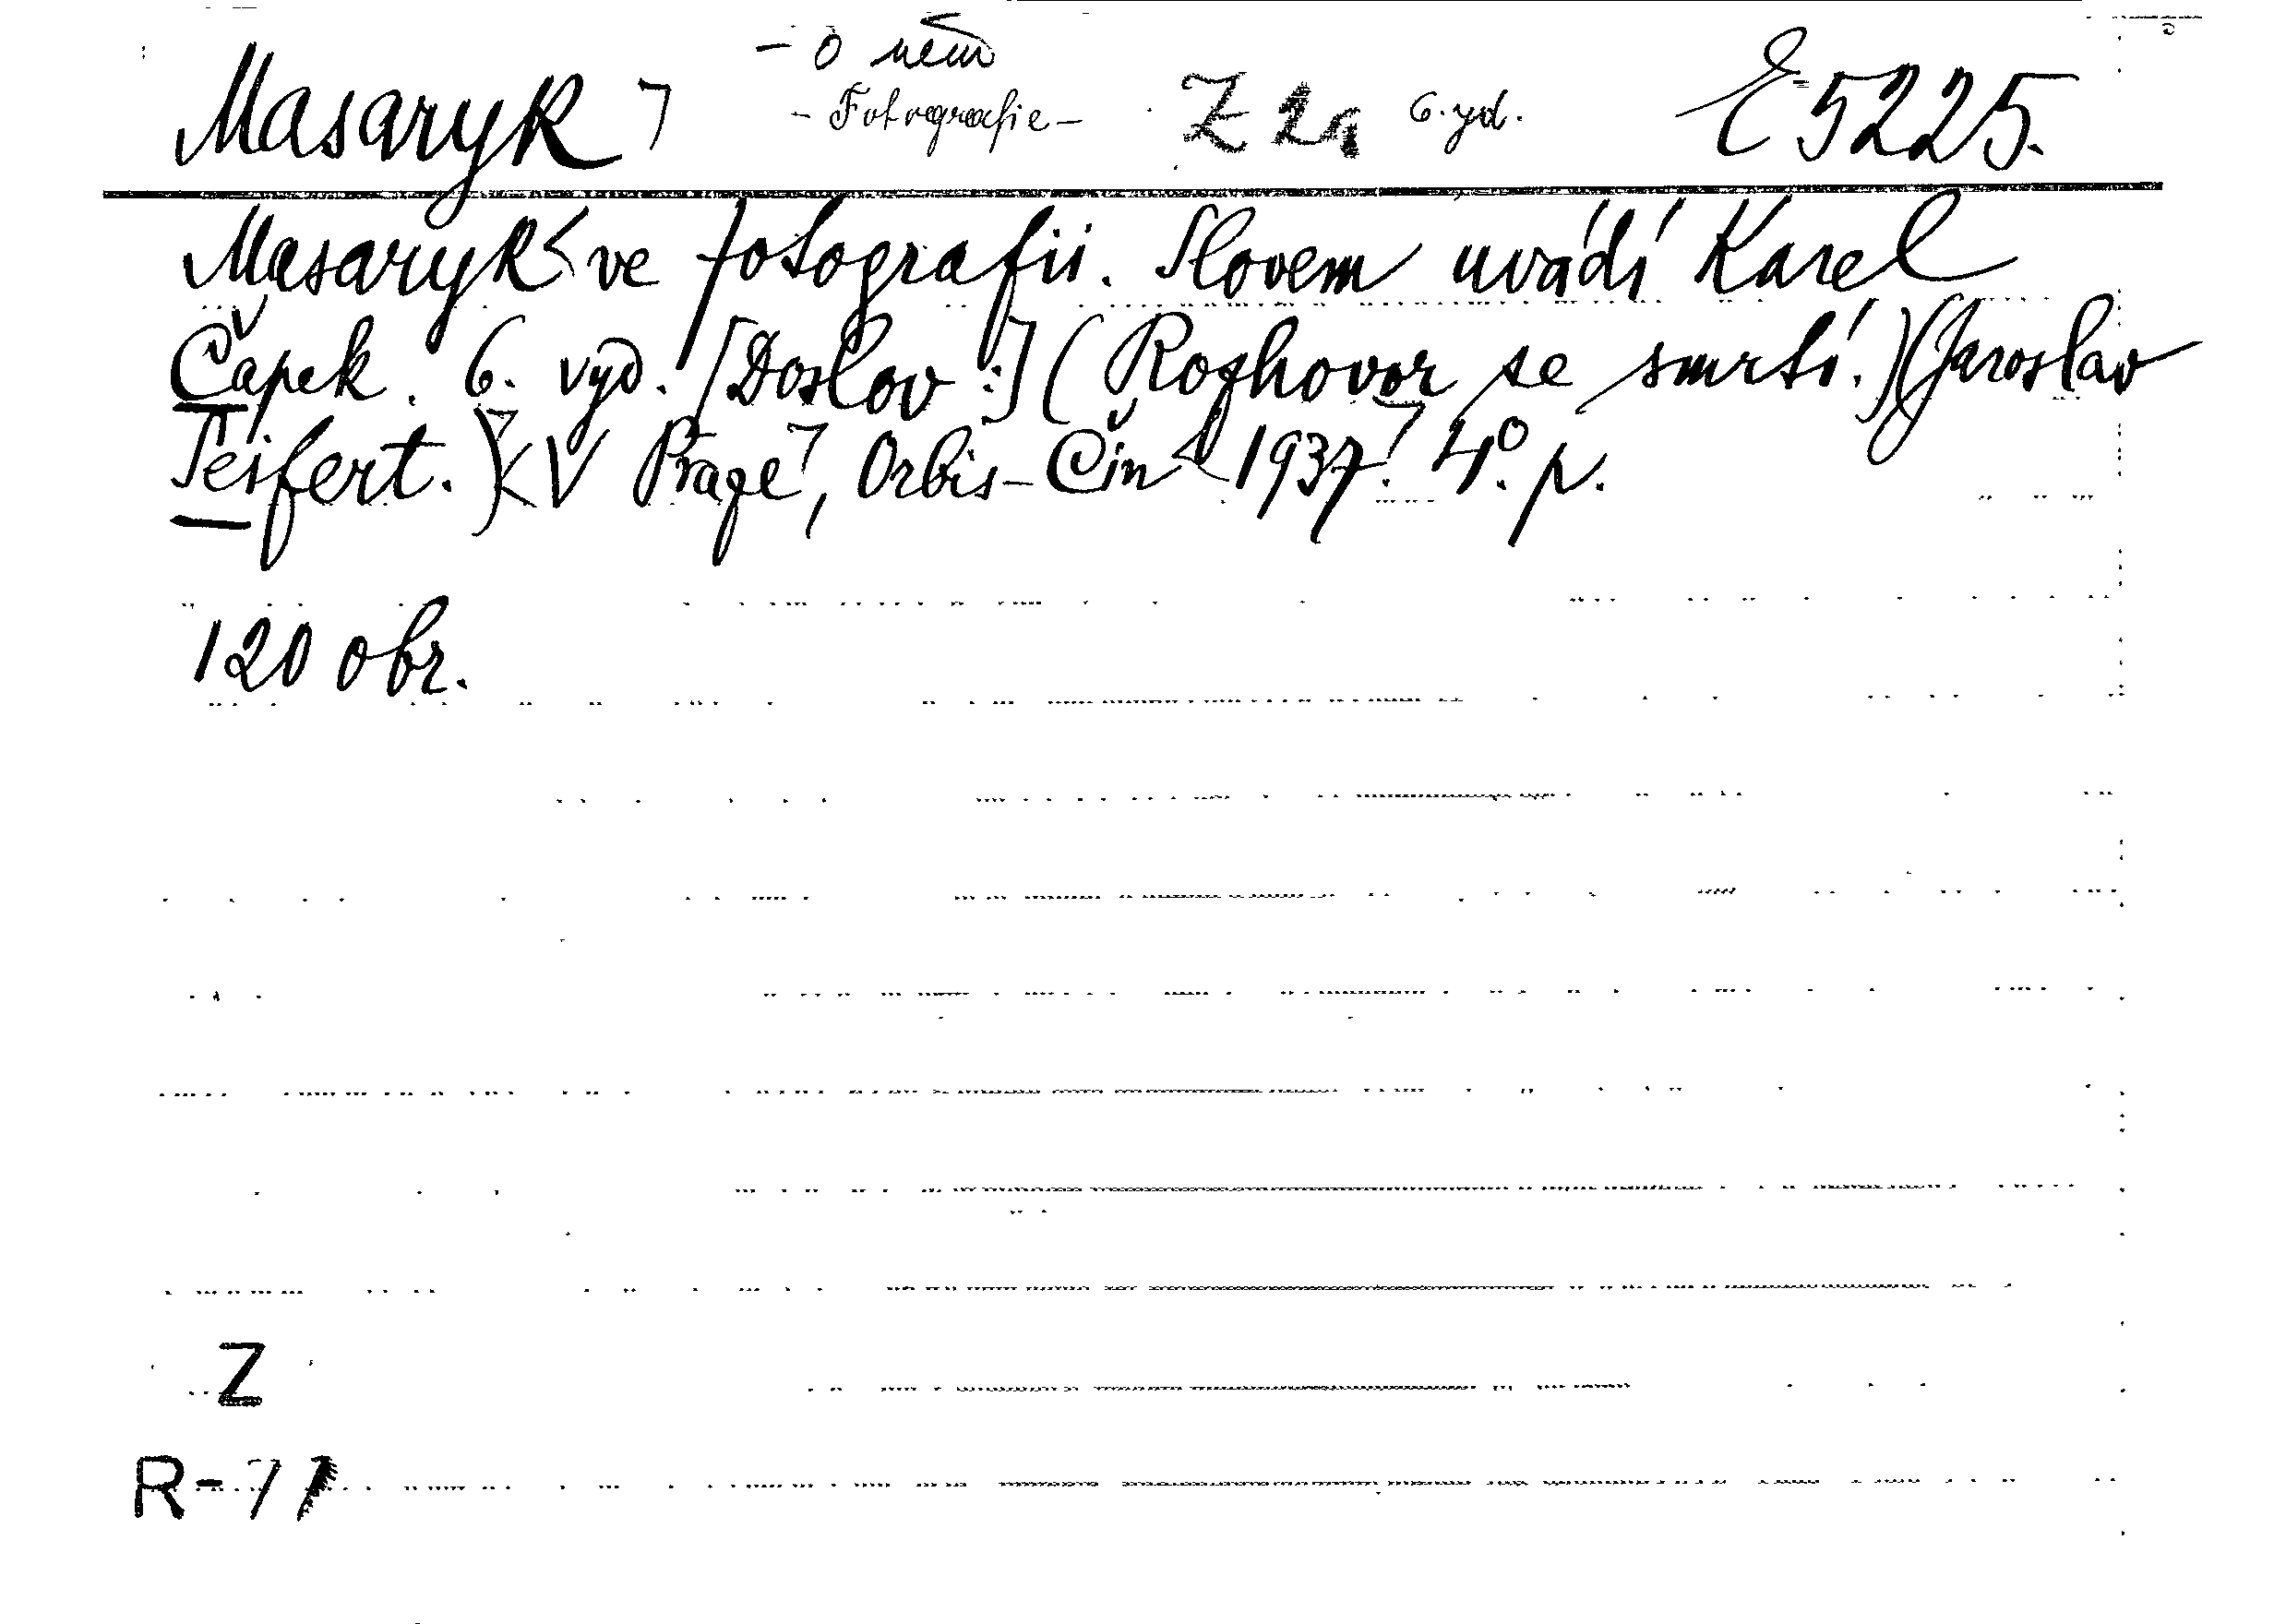 - o něm
Masaryk ⁊ - Fotografie - Z 2a 6. yd. E 5225.
Masaryk < ve fotografii. Slovem uvádí Karel
Čapek. 6. vyd. [Doslov:] (Rozhovor se smrtí.) (Jaroslav
Seifert.) < V Praze ⁊, Orbis-Čin < 1937. ⁊ 4° p.
120 obr.
Z
R-77